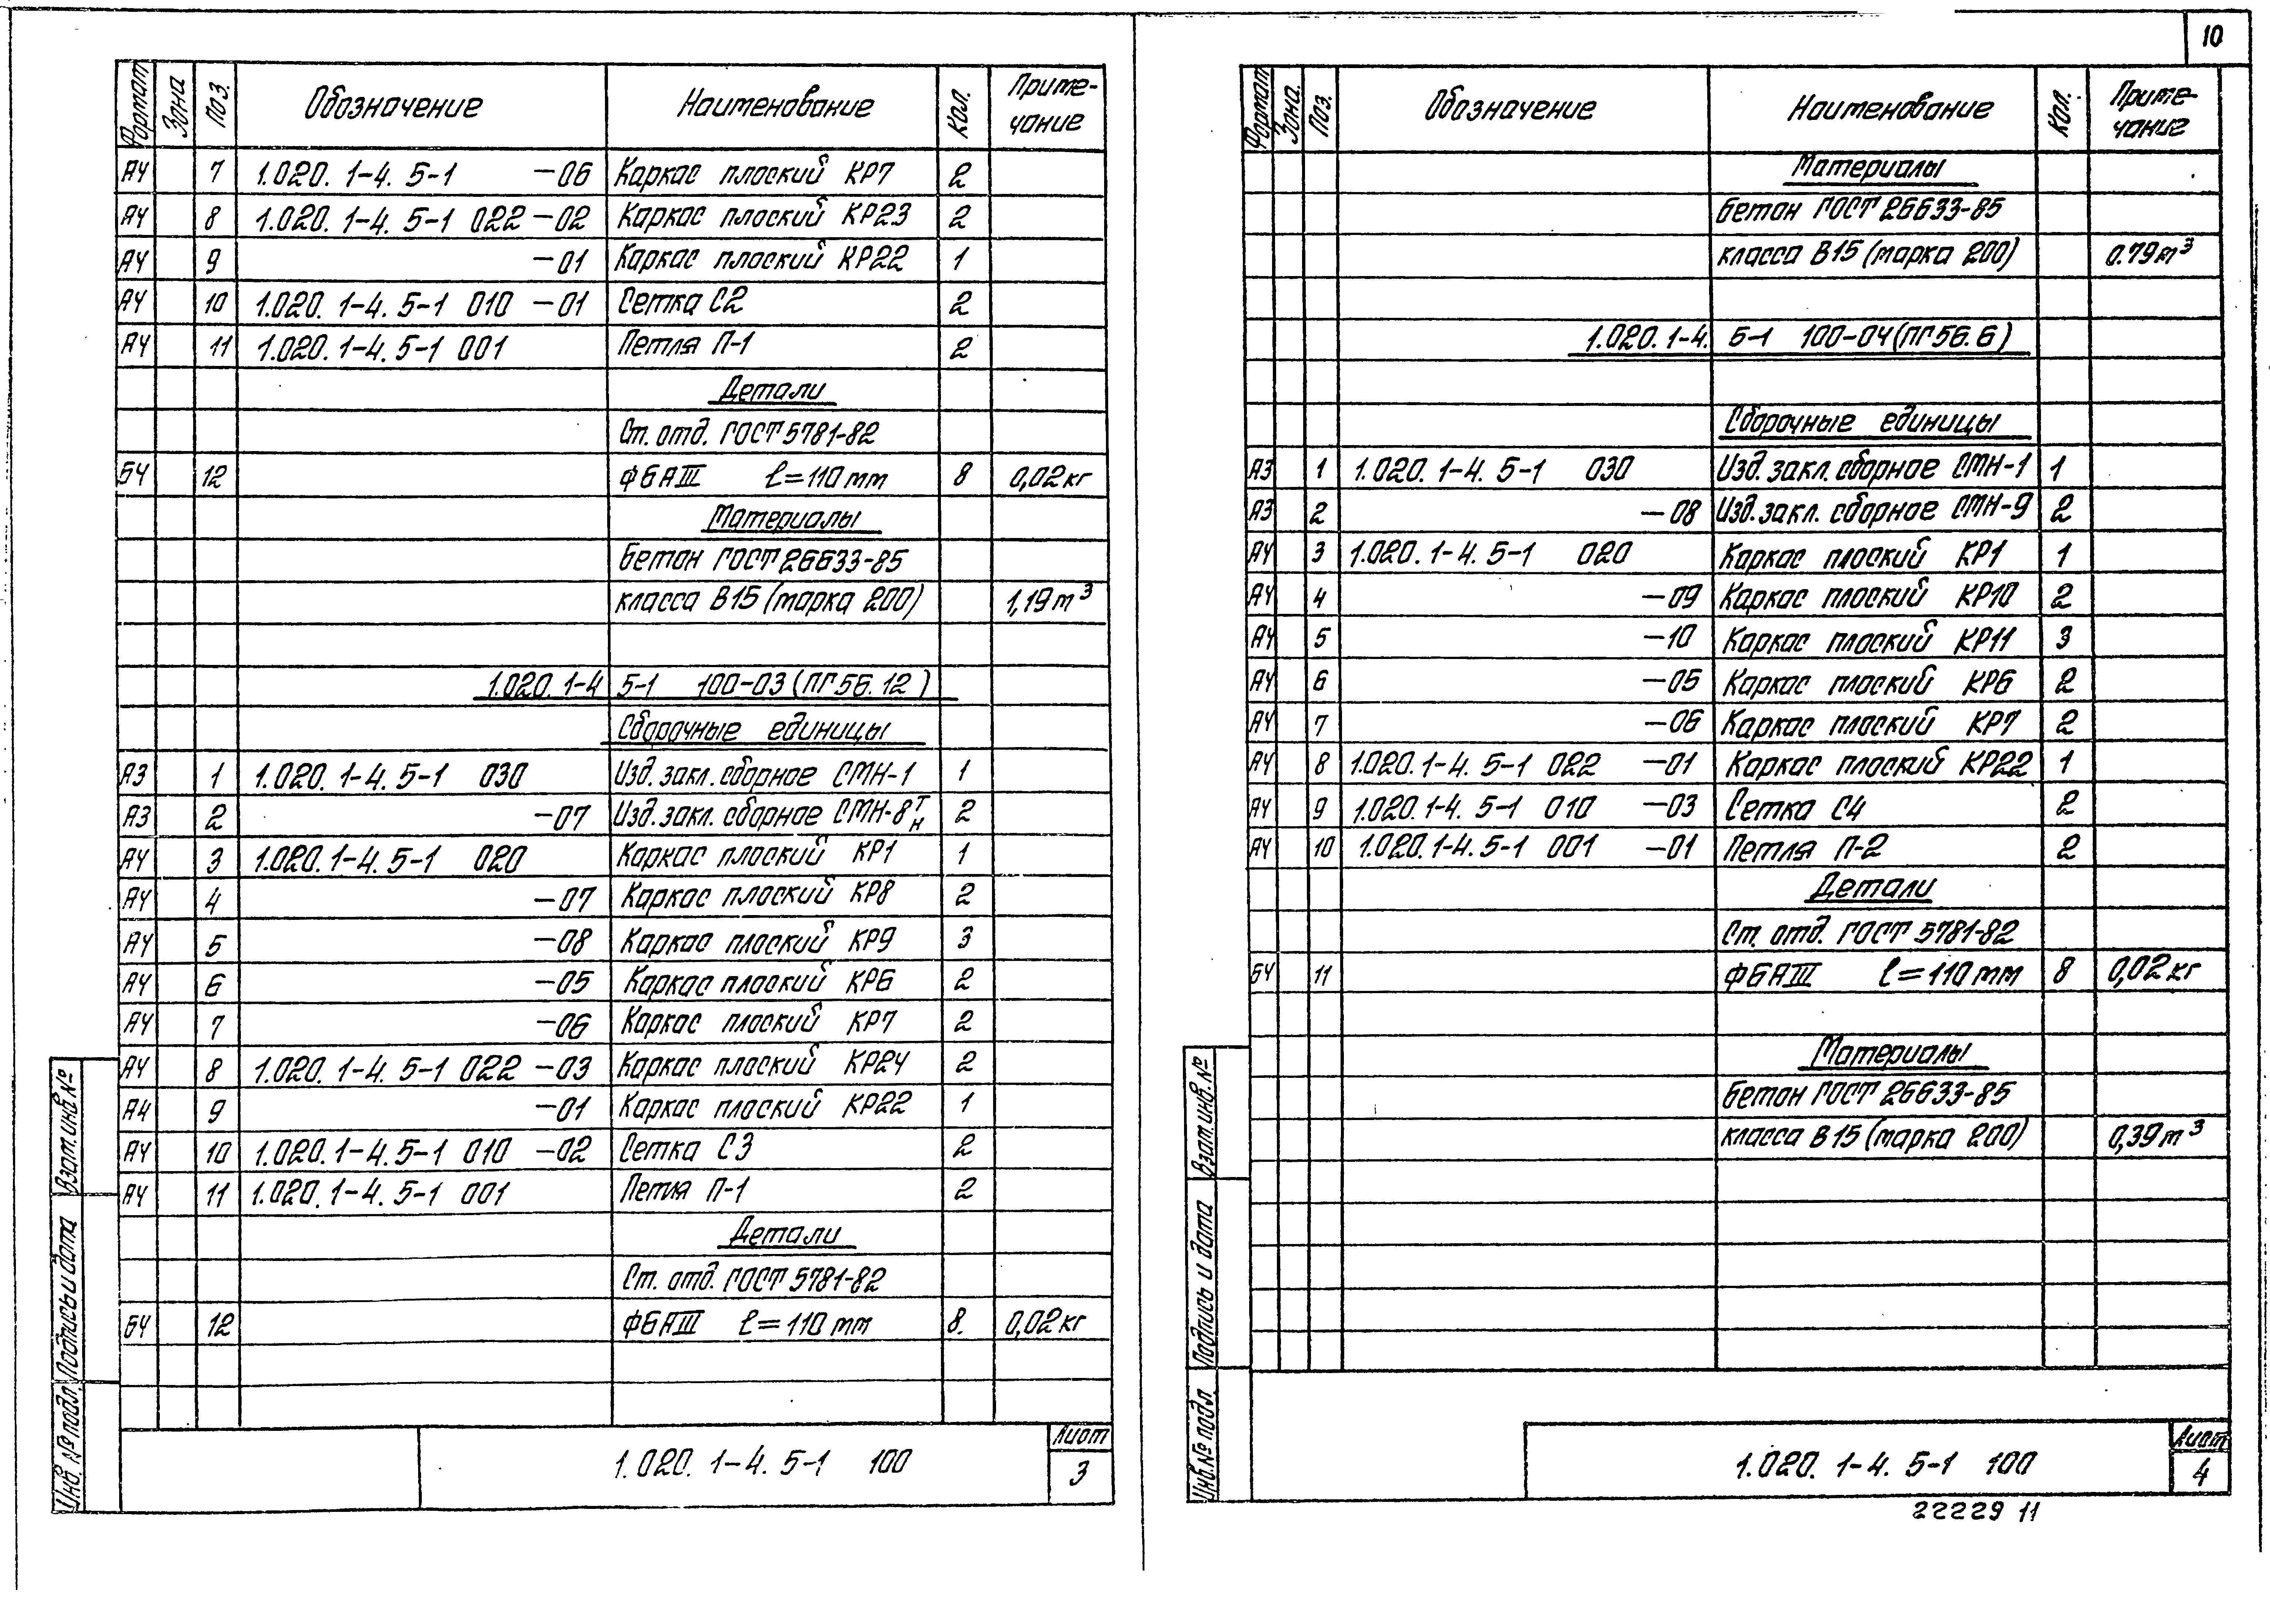 10
Формат Зона Поз. Обозначение Наименование Кол. Приме-
чание
А4 7 1.020.1-4.5-1 -06 Каркас плоский КР7 2
А4 8 1.020.1-4.5-1 022 -02 Каркас плоский КР23 2
А4 9 -01 Каркас плоский КР22 1
А4 10 1.020.1-4.5-1 010 -01 Сетка С2 2
А4 11 1.020.1-4.5-1 001 Петля П-1 2
Детали
Ст. отд. ГОСТ 5781-82
БЧ 12 Ф6АIII ℓ=110мм 8 0,02кг
Материалы
Бетон ГОСТ 26633-85
класса В15 (марка 200) 1,19 м³
1.020.1-4 5-1 100-03 (ПГ56.12)
Сборочные единицы
А3 1 1.020.1-4.5-1 030 Изд. закл. сборное СМН-1 1
А3 2 -07 Изд. закл. сборное СМН-8 т н 2
А4 3 1.020.1-4.5-1 020 Каркас плоский КР1 1
А4 4 -07 Каркас плоский КР8 2
А4 5 -08 Каркас плоский КР9 3
А4 6 -05 Каркас плоский КР6 2
А4 7 -06 Каркас плоский КР7 2
А4 8 1.020.1-4.5-1 022 -03 Каркас плоский КР24 2
А4 9 -01 Каркас плоский КР22 1
А4 10 1.020.1-4.5-1 010 -02 Сетка С3 2
А4 11 1.020.1-4.5-1 001 Петля П-1 2
Детали
Ст. отд. ГОСТ 5781-82
БЧ 12 Ф6АIII ℓ=110мм 8. 0,02кг
Взам. инв. №
Подпись и дата
Инв. № подл.
1.020.1-4.5-1 100
Лист
3
Формат Зона. Поз. Обозначение Наименование Кол. Приме-
чание
Материалы
Бетон ГОСТ 26633-85
класса В15 (марка 200) 0.79 м³
1.020.1-4. 5-1 100-04 (ПГ56.6)
Сборочные единицы
А3 1 1.020.1-4.5-1 030 Изд. закл. сборное СМН-1 1
А3 2 -08 Изд. закл. сборное СМН-9 2
А4 3 1.020.1-4.5-1 020 Каркас плоский КР1 1
А4 4 -09 Каркас плоский КР10 2
А4 5 -10 Каркас плоский КР11 3
А4 6 -05 Каркас плоский КР6 2
А4 7 -06 Каркас плоский КР7 2
А4 8 1.020.1-4.5-1 022 -01 Каркас плоский КР22 1
А4 9 1.020.1-4.5-1 010 -03 Сетка С4 2
А4 10 1.020.1-4.5-1 001 -01 Петля П-2 2
Детали
Ст. отд. ГОСТ 5781-82
БЧ 11 Ф6АIII ℓ=110мм 8 0,02кг
Материалы
Бетон ГОСТ 26633-85
класса В15 (марка 200) 0,39 м³
Взам. инв. №
Подпись и дата
Инв. № подл.
1.020.1-4.5-1 100
Лист
4
22229 11